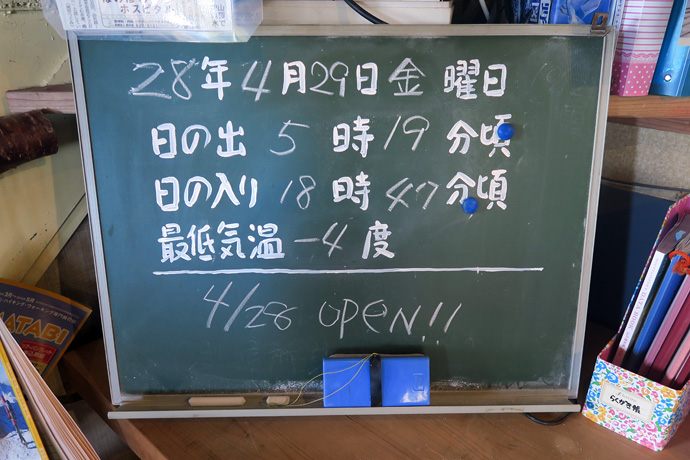 ホスピタル
28年4月29日金曜日
日の出 5 時 19 分頃
日の入り 18 時 47 分頃
最低気温 -4 度
4/28 OPEN!!
ATABI
らくがき帳